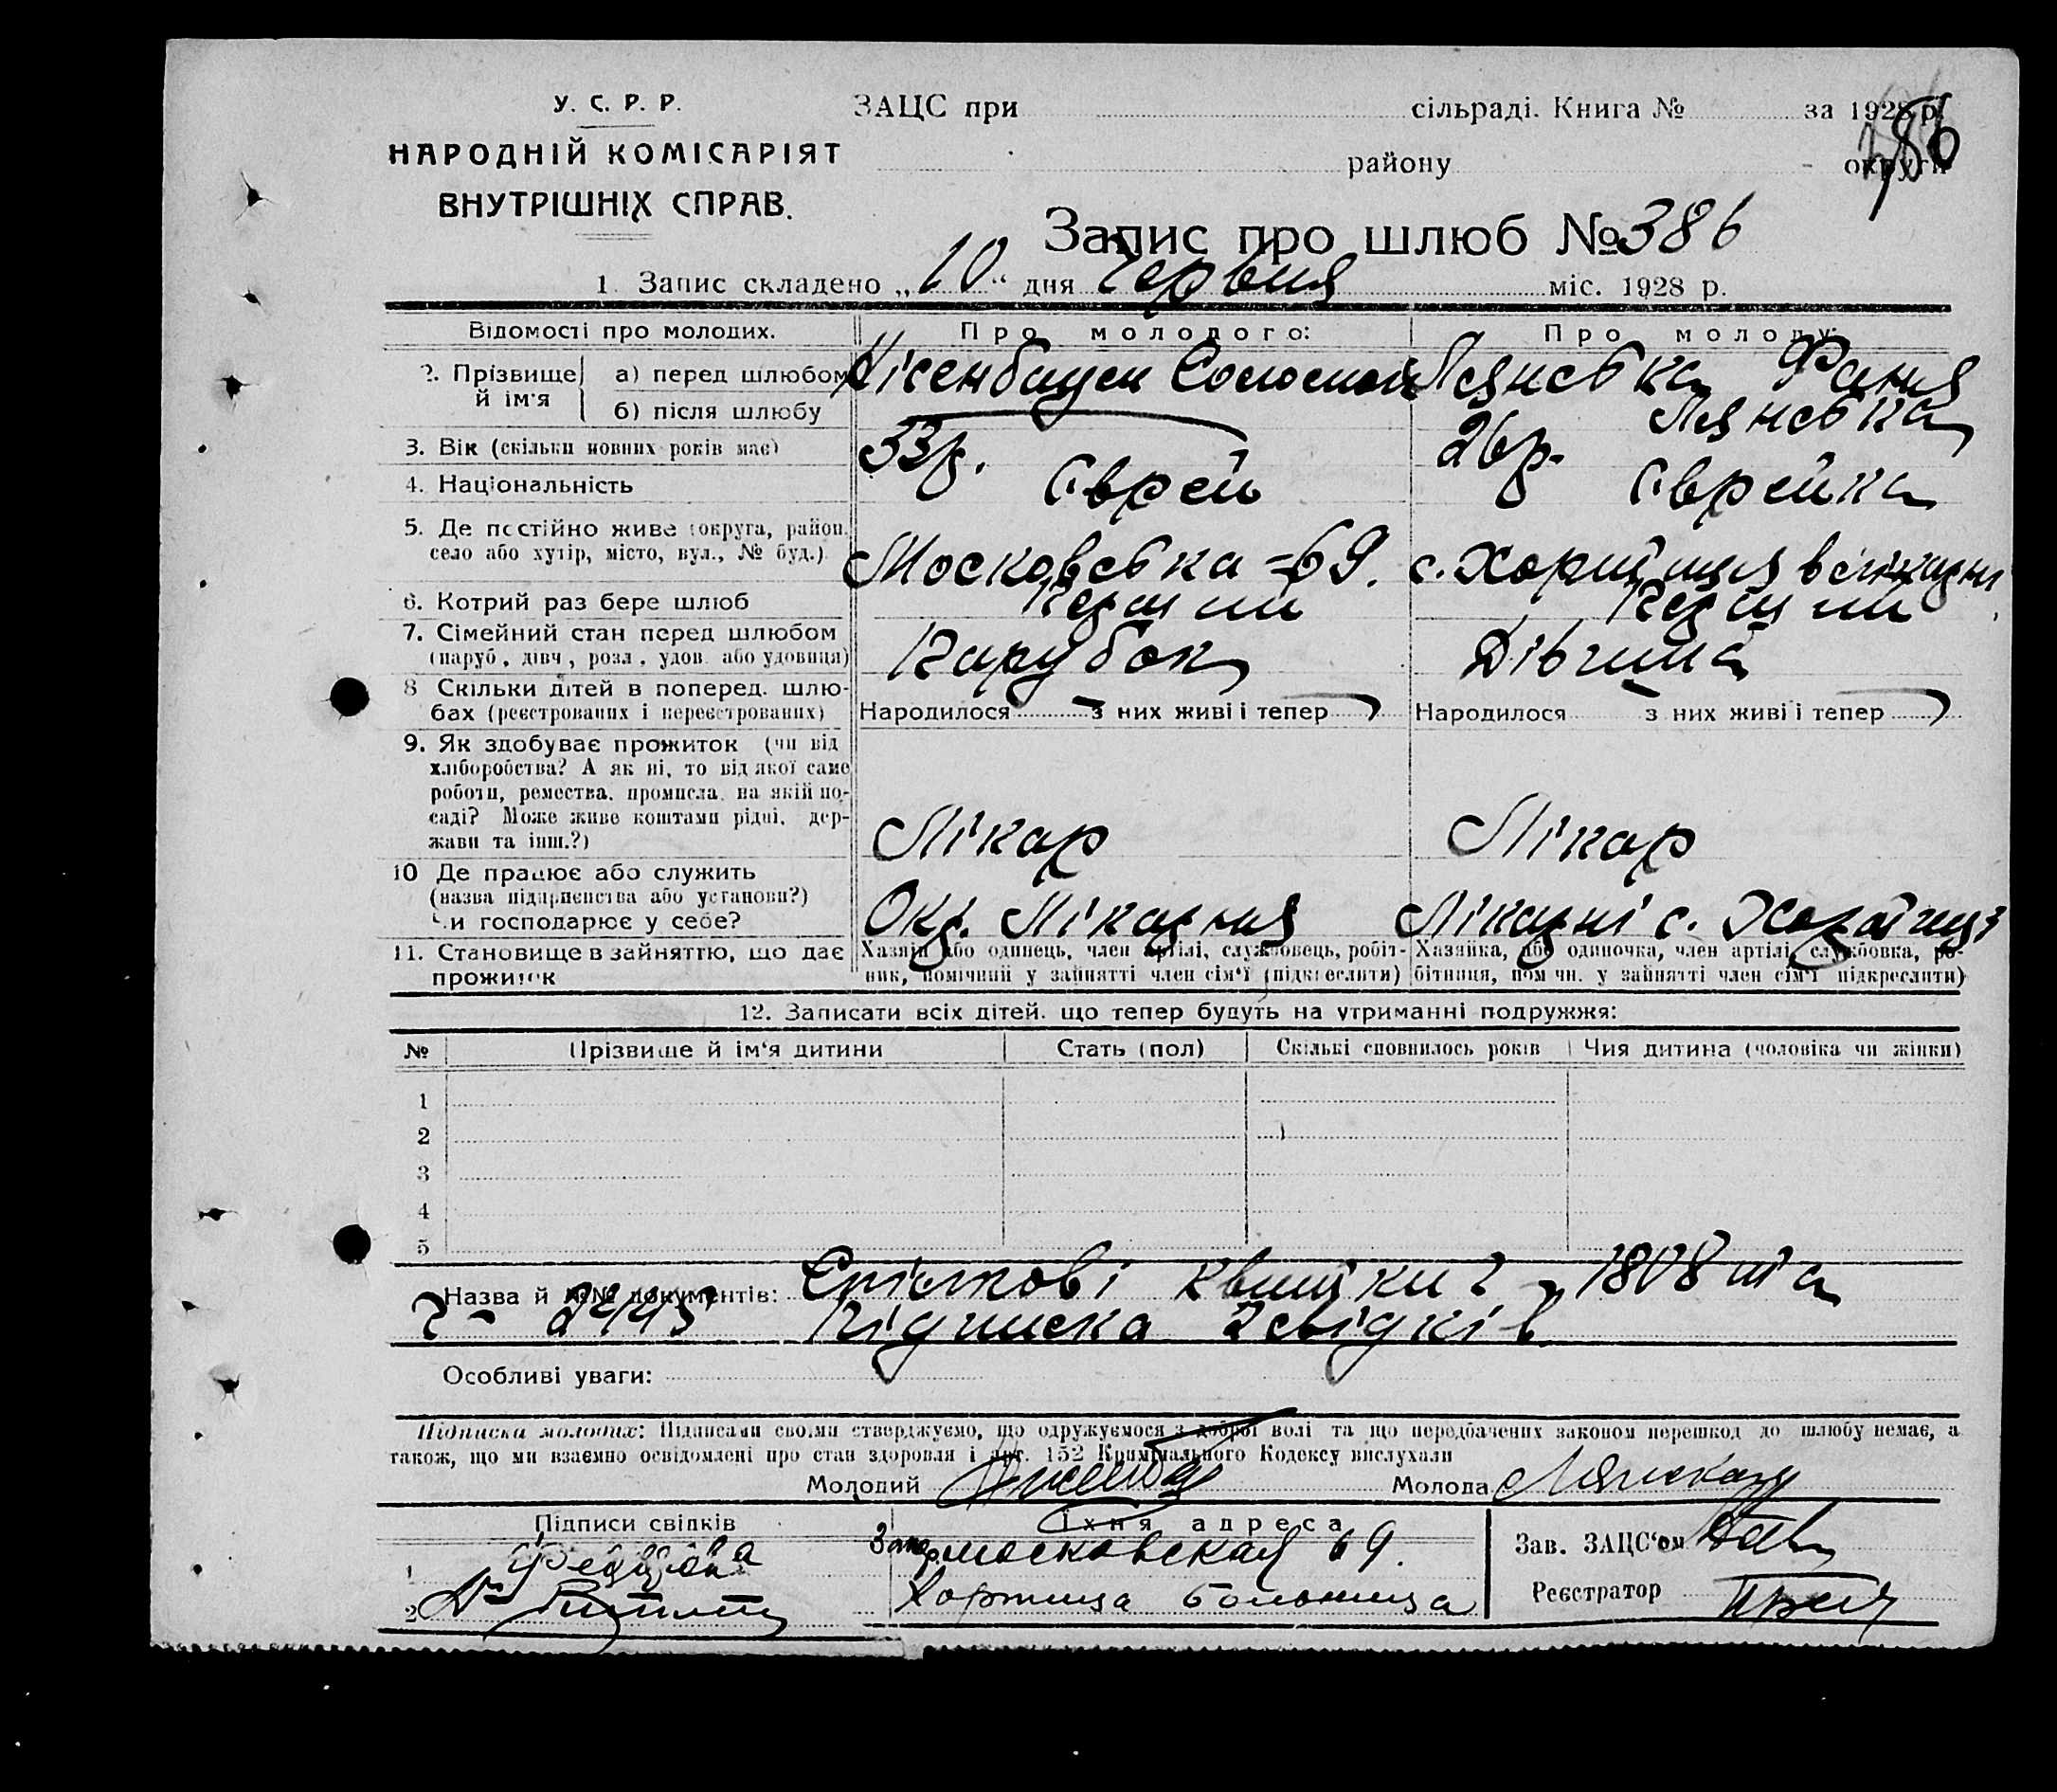 У. С. Р. Р.
НАРОДНІЙ КОМІСАРІЯТ
ВНУТРІШНІХ СПРАВ.
ЗАЦС при сільраді. Книга № за 1928 р.
району округи
386
Запис про шлюб № 386
1. Запис складено „10“ дня Червня міс. 1928 р.
Відомості про молодих. Про молодого: Про молоду:
2. Прізвище й ім'я а) перед шлюбом Лянська Фаня
б) після шлюбу Лянська
3. Вік (скільки повних років має) 33р. 26р.
4. Національність Єврей Єврейка
5. Де постійно живе (округа, район,
село або хутір, місто, вул., № буд.) Московська -69. с. Хортиця
6. Котрий раз бере шлюб Перший Перший
7. Сімейний стан перед шлюбом
(паруб., дівч., розл., удов. або удовиця) Парубок Дівчина
8 Скільки дітей в поперед. шлю-
бах (реєстрованих і нереєстрованих) Народилося - з них живі і тепер Народилося - з них живі і тепер
9. Як здобуває прожиток (чи від
хліборобства? А як ні, то від якої саме
роботи, ремества, промисла, на якій по-
саді? Може живе коштами рідні, дер-
жави та інш.?) Лікар Лікар
10 Де працює або служить
(назва підприємства або установи?)
Чи господарює у себе? Окр. Лікарня Лікарні с. Хортиці
11. Становище в зайняттю, що дає
прожиток
Хазяїн або одинець, член артілі, службовець, робіт-
ник, помічний у зайнятті член сім'ї (підкреслити)
Хазяйка, або одиночка, член артілі, службовка, ро-
бітниця, пом чн. у зайнятті член сім'ї підкреслити)
12. Записати всіх дітей, що тепер будуть на утриманні подружжя:
№ Прізвище й ім'я дитини Стать (пол) Скількі сповнилось років Чия дитина (чоловіка чи жінки)
1
2
3
4
5
Назва й №№ документів: Спілкові квитки 2 - 1808 та
2445 Підписка 2 свідків
Особливі уваги:
Підписка молодих: Підписами своїми стверджуємо, що одружуємося з доброї волі та що передбачених законом перешкод до шлюбу немає, а
також, що ми взаємно освідомлені про стан здоровля і арт. 152 Кримінального Кодексу вислухали
Молодий Молода Лянская
Підписи свідків Їхня адреса
1 Запор. Московская 69.
2 Хортица больница
Зав. ЗАЦС'ом
Реєстратор